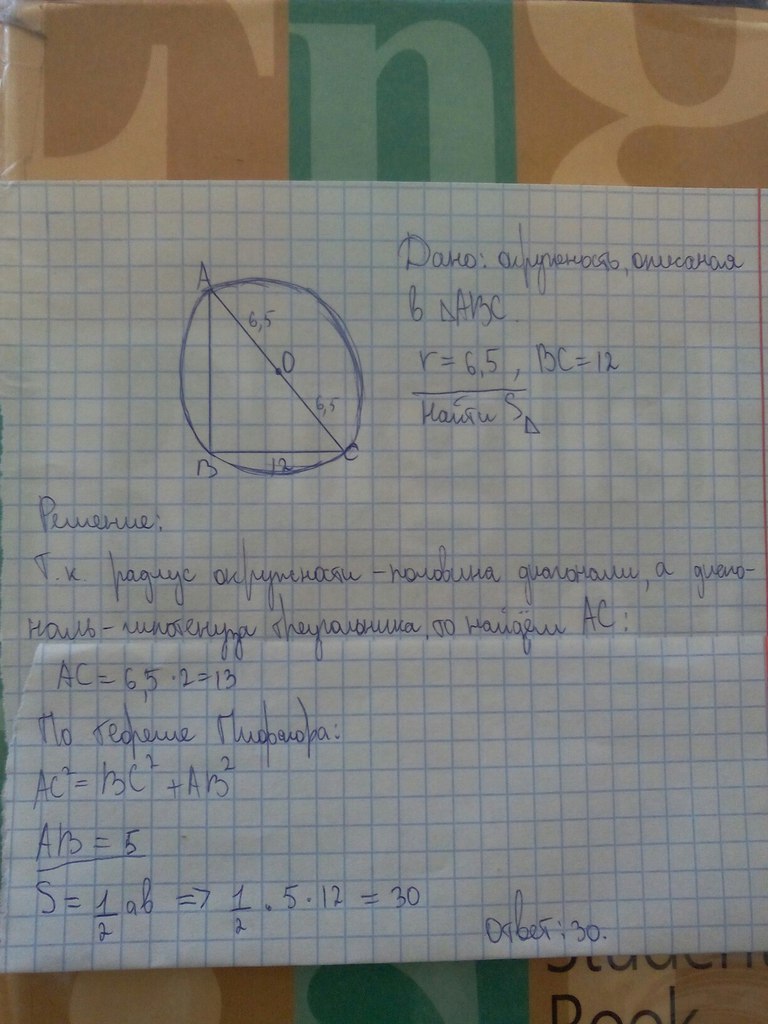 A
6,5
O
6,5
B
12
C
Дано: окружность, описаная
в △ABC.
r = 6,5 , BC = 12
Найти S△
Решение:
Т.к. радиус окружности - половина диагонали, а диаго-
наль - гипотенуза треугольника, то найдём AC:
AC = 6,5 · 2 = 13
По теореме Пифагора:
AC² = BC² + AB²
AB = 5
S = 1/2 ab => 1/2 · 5 · 12 = 30
Ответ: 30.
Student
Book